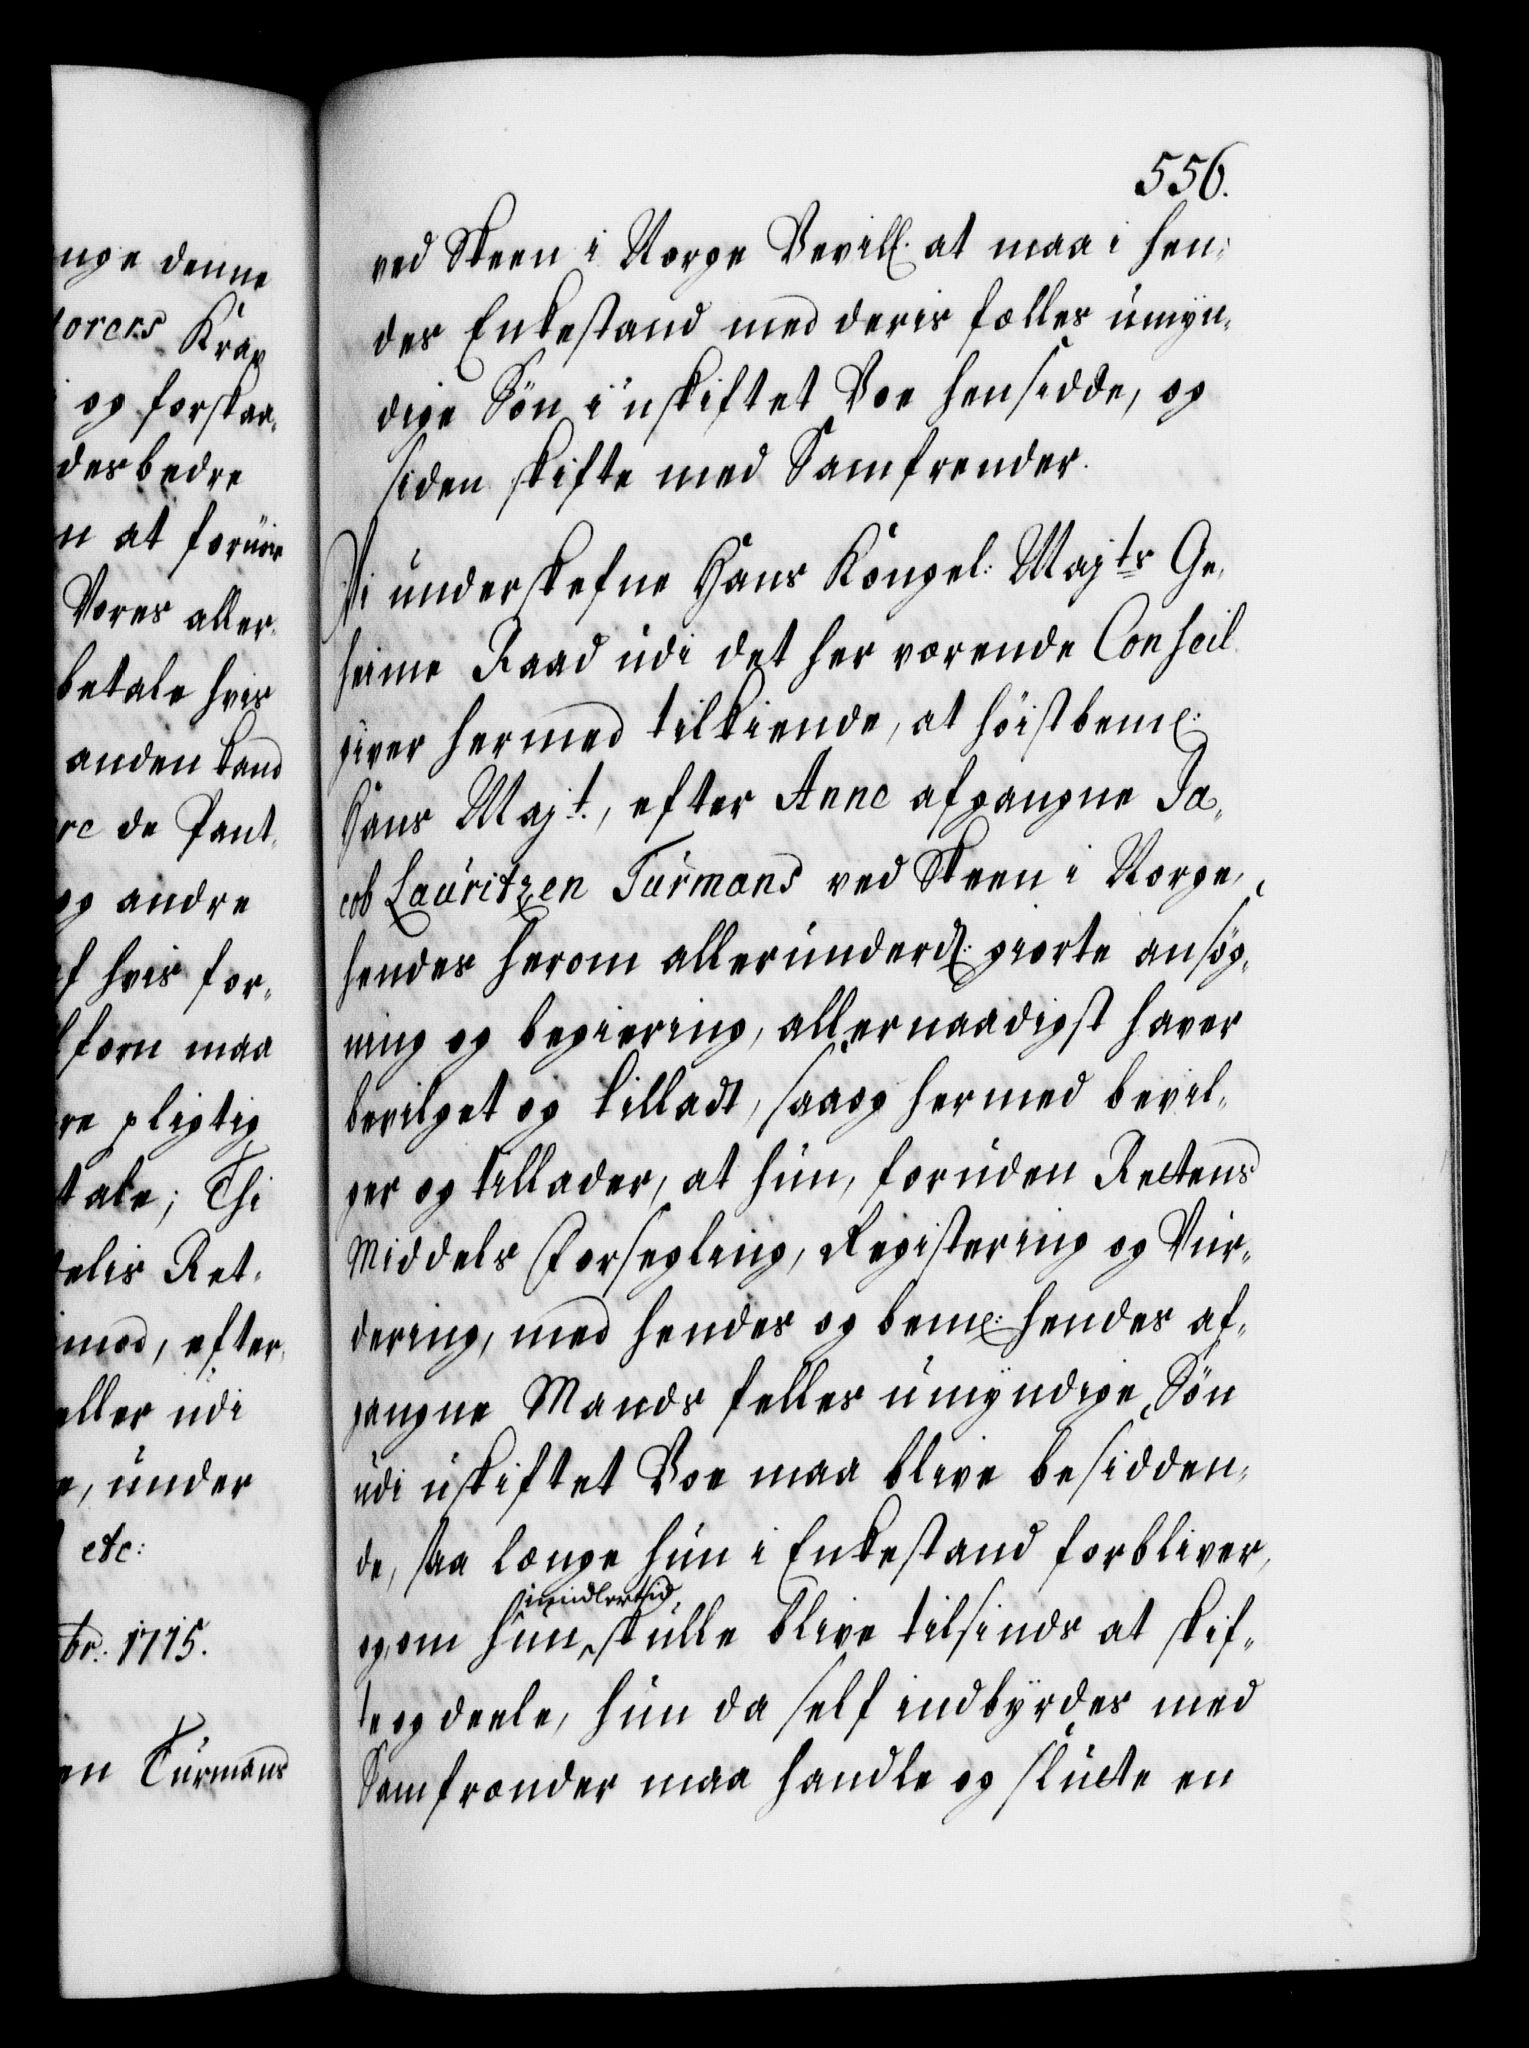 nge denne
torers Krav
og forskaa„
des bedre
n at foruur
Vores aller„
betale hvis
anden Land
re de Pant„
og andre
af hvis for„
forn maa
re pligtig
tale; Thi
elis Ret„
imod, efter„
eller udi
e, under
etc:
br: 1715.
en Turmans
556.
ved Skeen i Norge Bevill. at maa i hen„
des Enkestand med deris fælles umyn„
dige Sön i uskiftet Boe hensidde, og
siden skifte med Samfrender.
Vi underskefne Hans Kongel: Majts Ge„
heime Raad udi det herværende Conseil
giver hermed tilkiende, at höistbemt:
Hans Majt., efter Anne afgangne Ja„
cob Lauritzen Turmans ved Skeen i Norge,
hendes herom allerunderd: giorte ansög„
ning og begiering, allernaadigst haver
bevilget og tilladt, saa og hermed bevil„
ger og tillader, at hun, foruden Rettens
Middels Forsegling, Registering og Vur„
dering, med hendes og bemt: hendes af„
gangne Mands felles umyndige Sön
udi uskiftet Boe maa blive besidden„
de, saa længe hun i Enkestand forbliver,
imidlertid
og om hun skulle blive tilsinds at skif„
te og deele, hun da self indbyrdes med
Samfrænder maa handle og slutte en